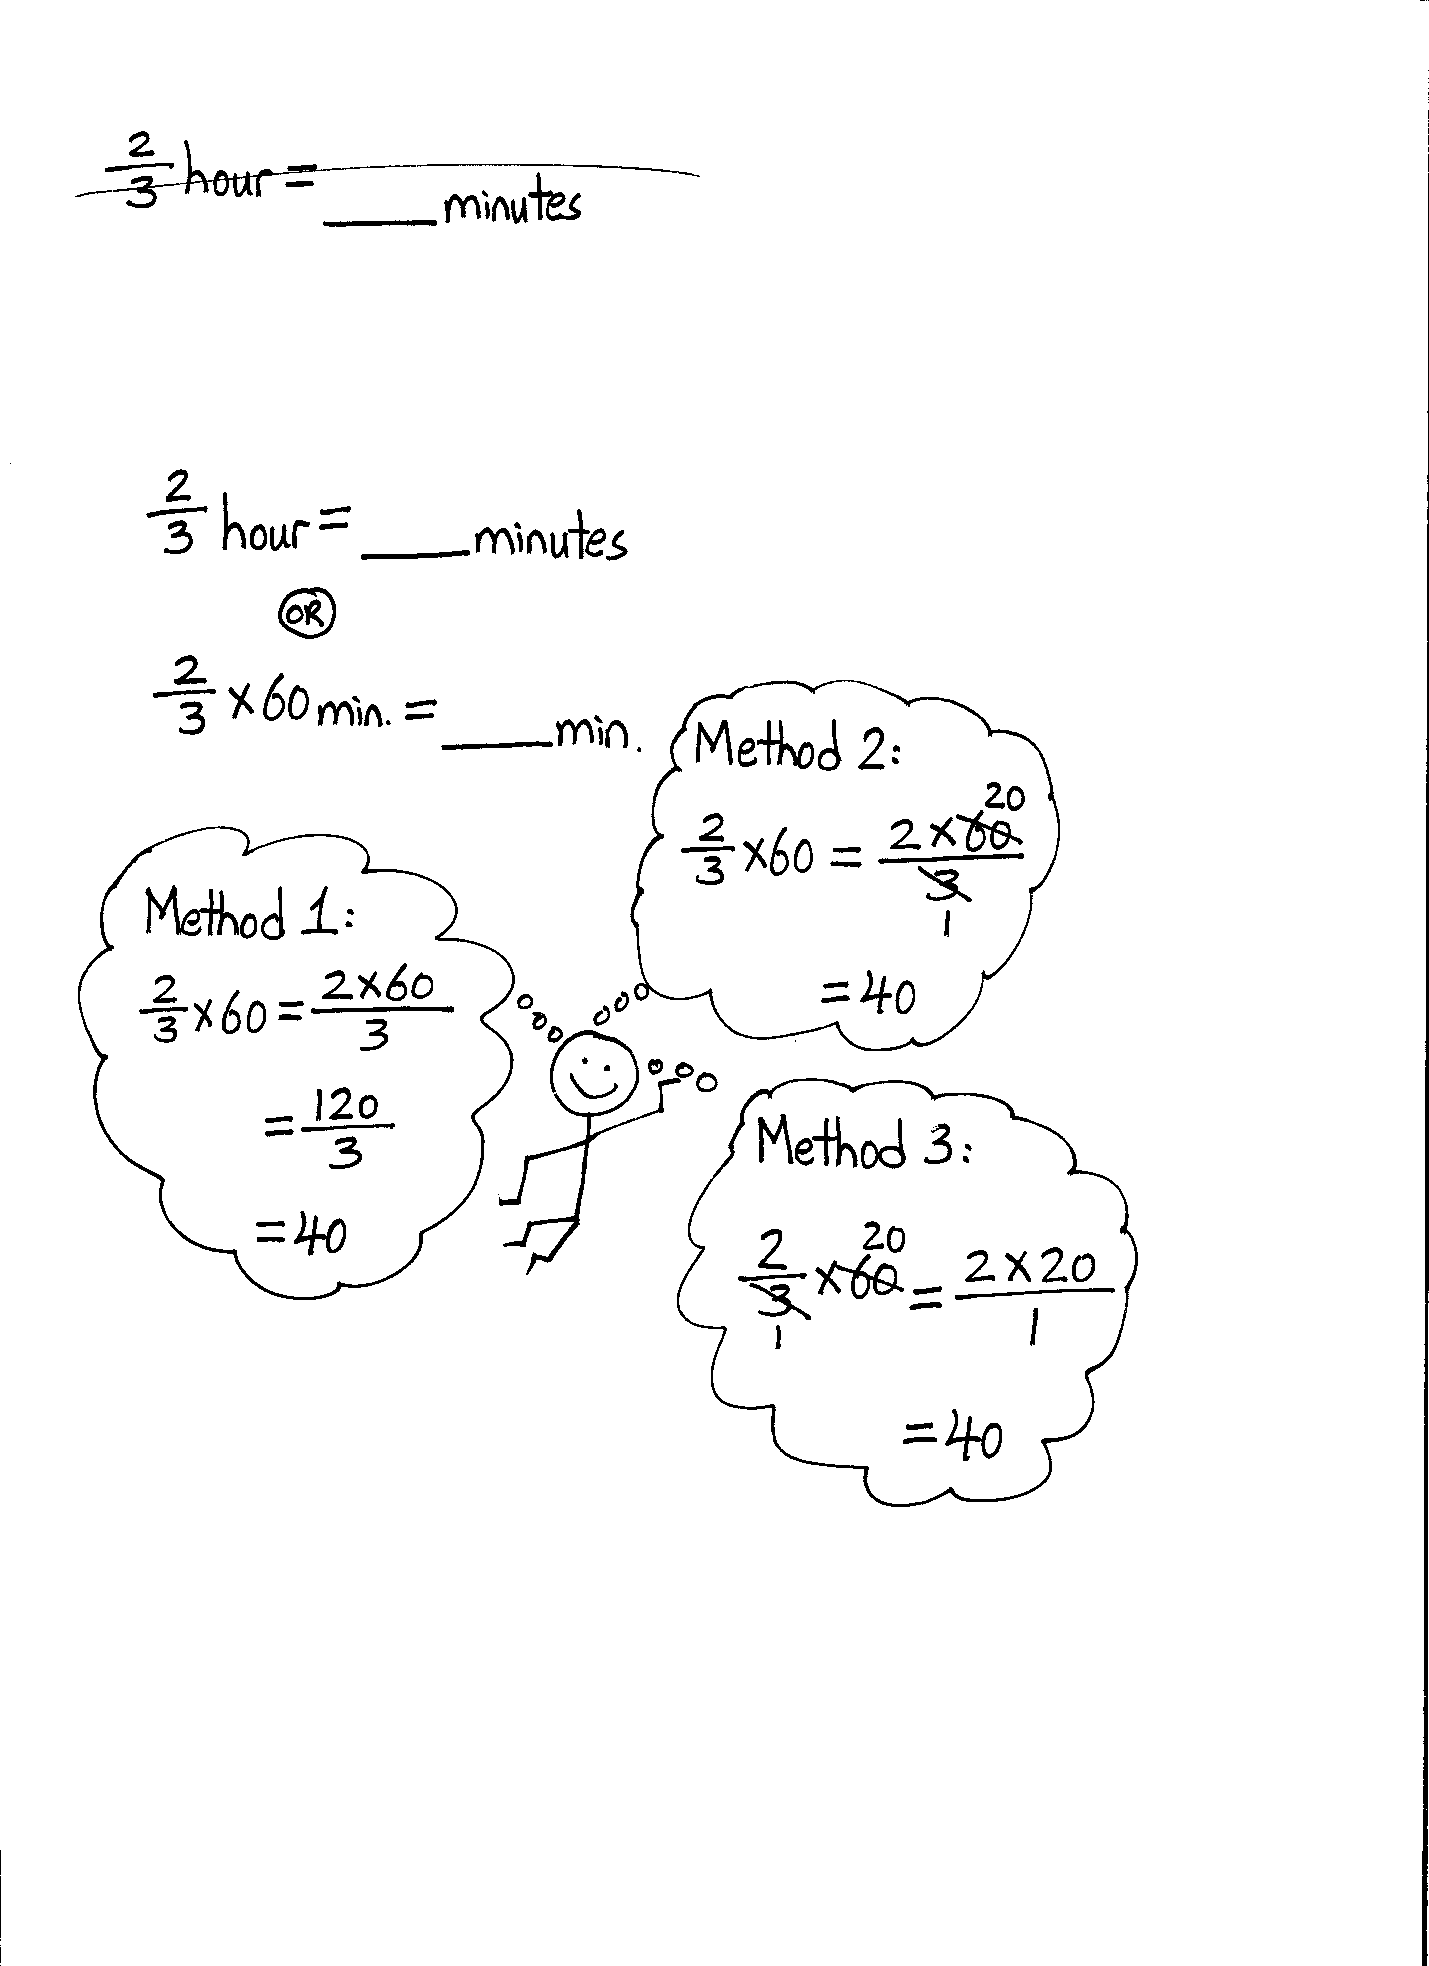 2/3 hour = ____ minutes
2/3 hour = ____ minutes
OR
2/3 × 60 min. = ____ min.
Method 1:
2/3 × 60 = 2 × 60/3
= 120/3
= 40
Method 2:
20
2/3 × 60 = 2 × 60/3
1
= 40
Method 3:
20
2/3 × 60 = 2 × 20/1
1
= 40